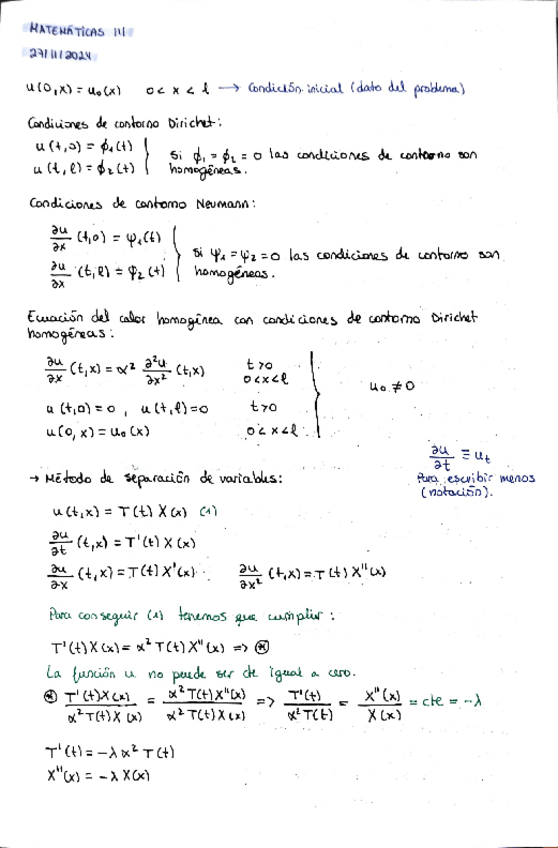 MATEMÁTICAS III
27/11/2024
u(0,x) = u₀(x)   0 < x < l → Condición inicial (dato del problema)
Condiciones de contorno Dirichet:
u(t,0) = ϕ₁(t)
u(t,l) = ϕ₂(t)
Si ϕ₁ = ϕ₂ = 0 las condiciones de contorno son
homogéneas.
Condiciones de contorno Neumann:
∂u/∂x (t,0) = ψ₁(t)
∂u/∂x (t,l) = ψ₂(t)
Si ψ₁ = ψ₂ = 0 las condiciones de contorno son
homogéneas.
Ecuación del calor homogénea con condiciones de contorno Dirichet
homogéneas:
∂u/∂x (t,x) = α² ∂²u/∂x² (t,x)   t>0
0<x<l
u(t,0) = 0 , u(t,l) = 0   t>0
u(0,x) = u₀(x)   0<x<l
u₀ ≠ 0
∂u/∂t ≡ uₜ
Para escribir menos
(notación).
→ Método de separación de variables:
u(t,x) = T(t) X(x) (1)
∂u/∂t (t,x) = T'(t) X(x)
∂u/∂x (t,x) = T(t) X'(x)   ∂u/∂x² (t,x) = T(t) X''(x)
Para conseguir (1) tenemos que cumplir:
T'(t) X(x) = α² T(t) X''(x) => ⊛
La función u no puede ser cte igual a cero.
⊛ T'(t)X(x)/α²T(t)X(x) = α²T(t)X''(x)/α²T(t)X(x) => T'(t)/α²T(t) = X''(x)/X(x) = cte = -λ
T'(t) = -λ α² T(t)
X''(x) = -λ X(x)